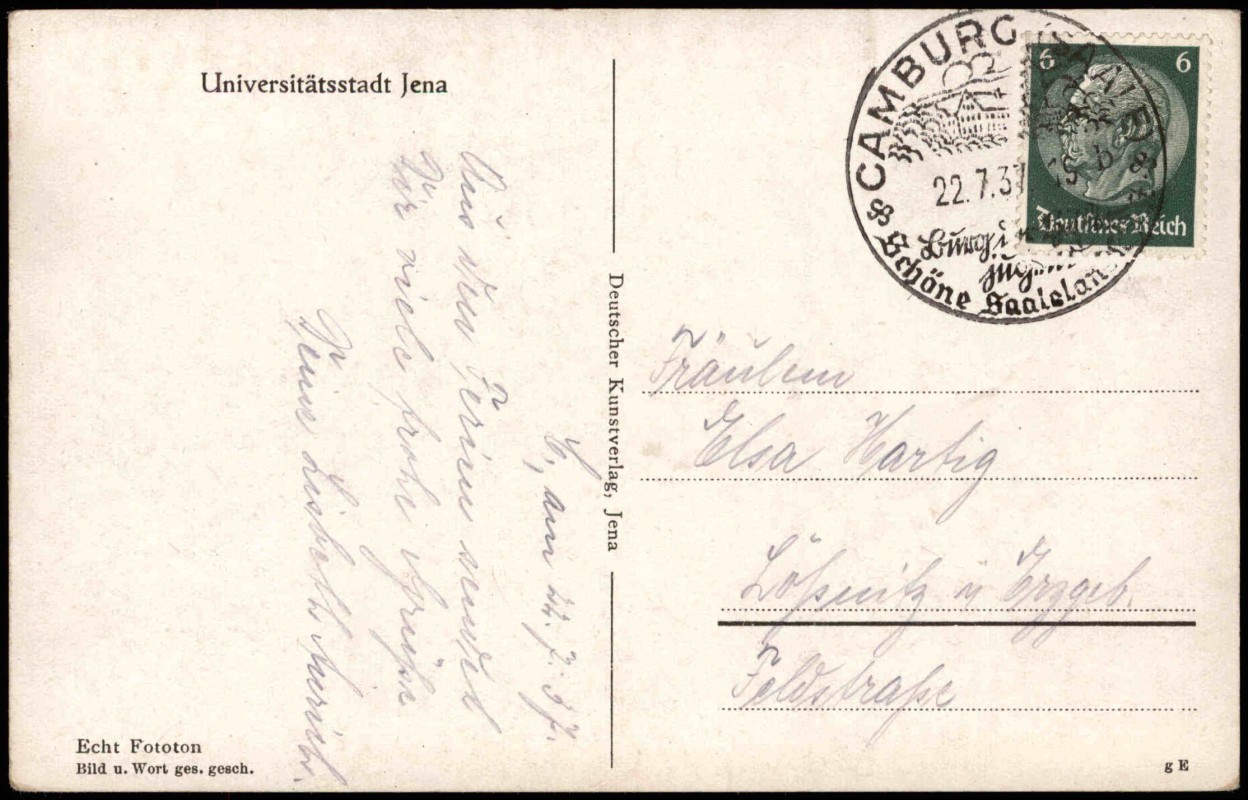 Universitätsstadt Jena
C, am 22. 7. 37.
Aus den Ferien sendet
Dir viele frohe Grüße
Deine Lisbeth
Echt Fototon
Bild u. Wort ges. gesch.
Deutscher Kunstverlag, Jena
CAMBURG SAALE
22.7.37
Burg
Schöne Saalelan
6 6
Deutsches Reich
Fräulein
Elsa Hartig
Lößnitz i Erzgeb.
Feldstraße
g E